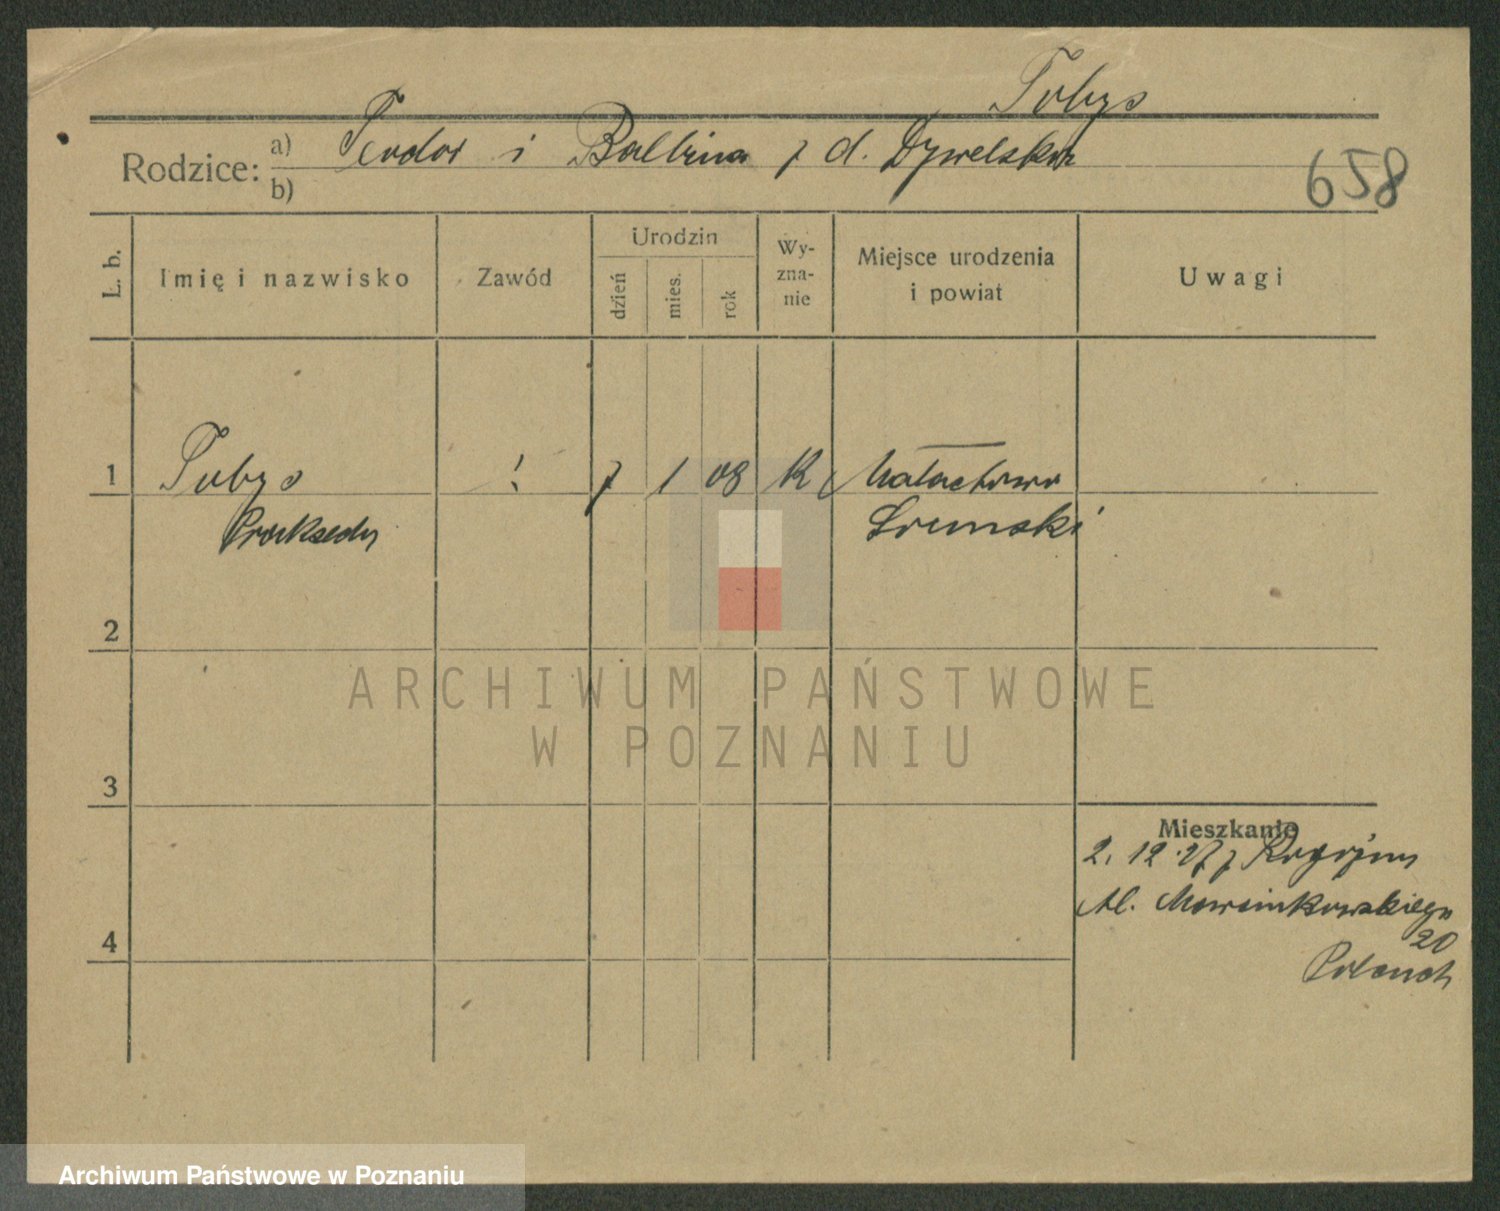 Tobys
Rodzice: a) Teodor i Balbina z d. Dyzwelska
b)
658
L. b.
Imię i nazwisko
Zawód
Urodzin
dzień
mies.
rok
Wy-
zna-
nie
Miejsce urodzenia
i powiat
Uwagi
1 Tobys ! 7 1 08 K Małachowo
Prakseda Śremski
2
3
4
Mieszkanie
2. 12. 27 z
Al. Marcinkowskiego
20
ARCHIWUM PAŃSTWOWE
W POZNANIU
Archiwum Państwowe w Poznaniu